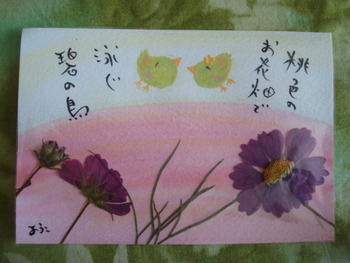 桃色の
お花畑で
泳ぐ
碧の鳥
ようこ